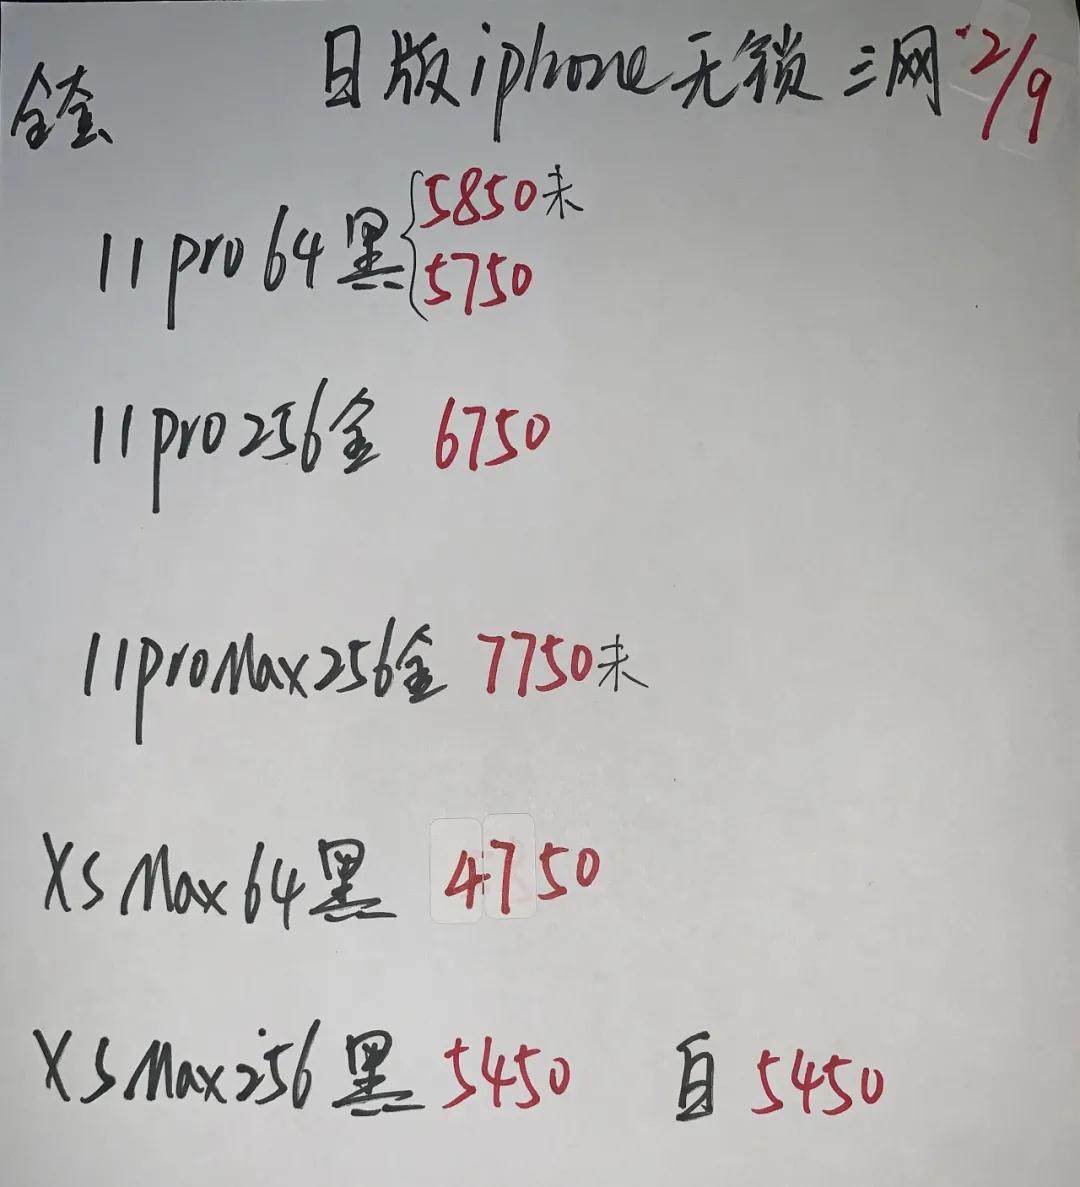 日版iphone无锁三网 2/9
全套
11pro 64黑 5850未
5750
11pro 256金 6750
11proMax 256金 7750未
XS Max 64黑 4750
XS Max 256黑 5450 白 5450